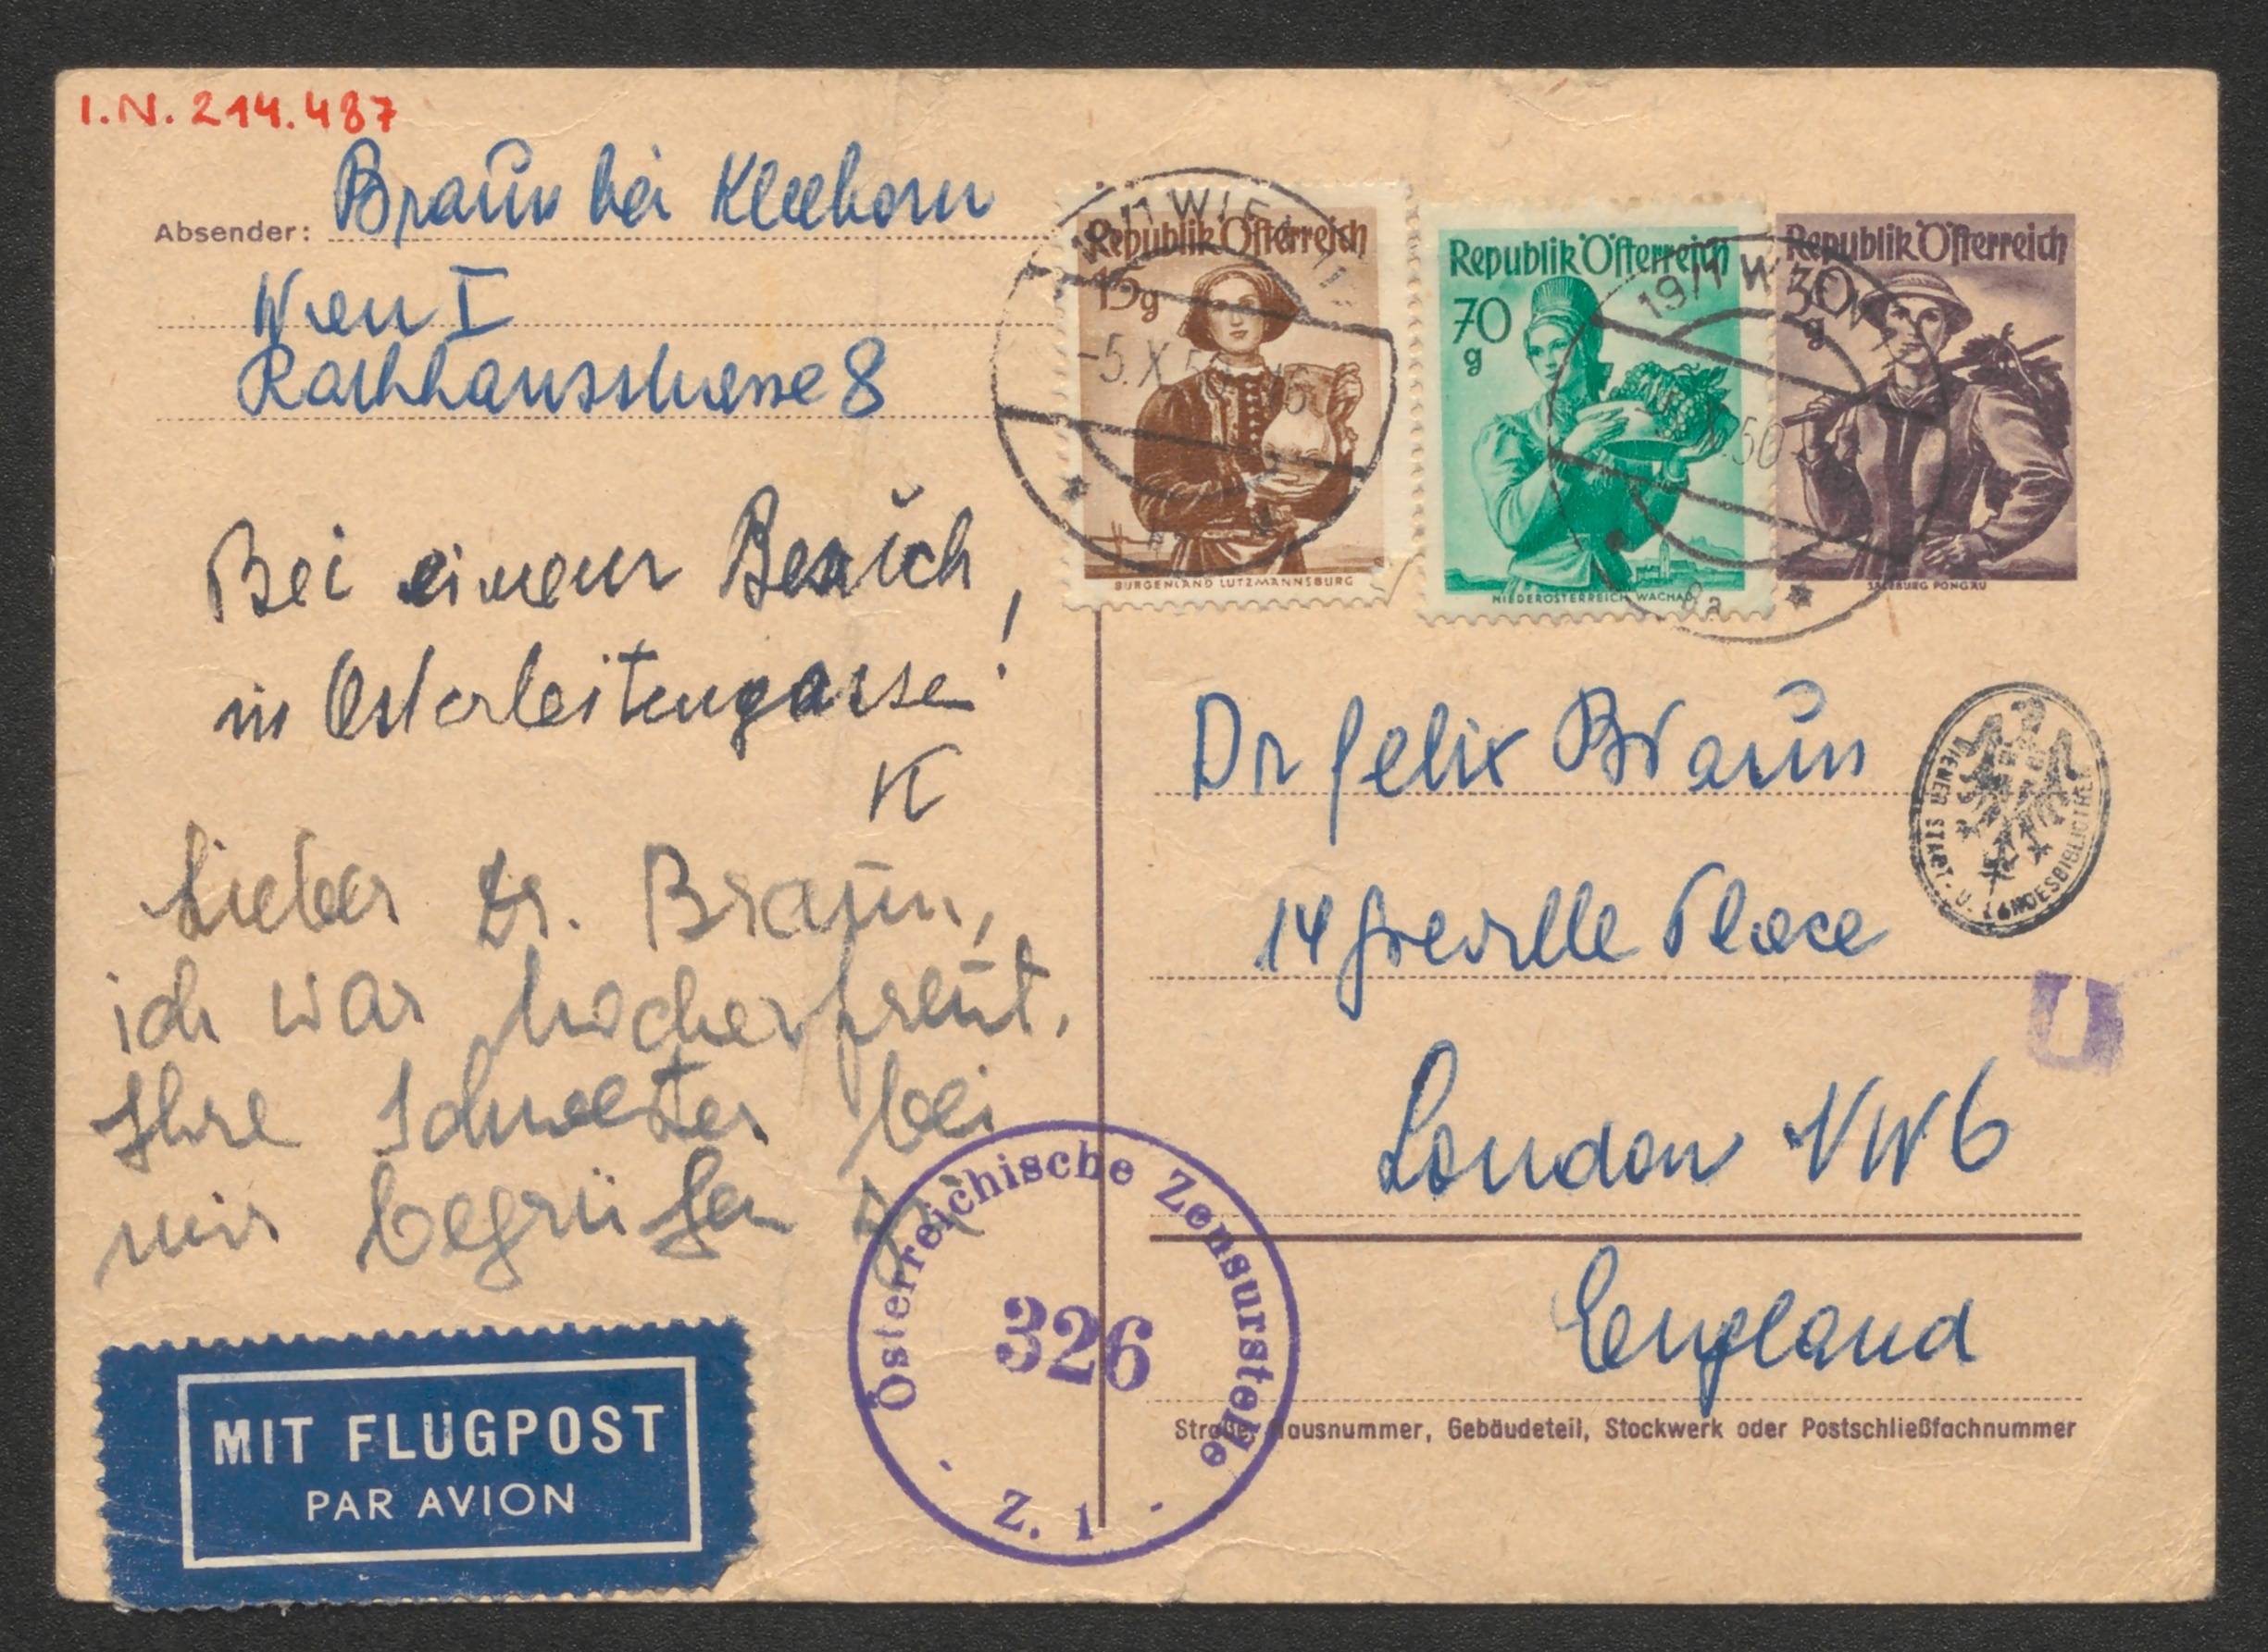 I.N. 214.487
Absender: Braun bei Kleeborn
Wien I
Rathhausstrasse 8
Bei einem Besuch
in Osterleitengasse!
K
Lieber Dr. Braun,
ich war hocherfreut,
Ihre Schwester bei
mir begrüßen zu
MIT FLUGPOST
PAR AVION
Republik Österreich
15g
BURGENLAND LUTZMANNSBURG
Republik Österreich
70
g
NIEDERÖSTERREICH, WACHAU
Republik Österreich
30
g
SALZBURG PONGAU
-5.X.50
19/1 W
50
8a
Dr Felix Braun
14 Greville Place
London NW6
England
Straße, Hausnummer, Gebäudeteil, Stockwerk oder Postschließfachnummer
WIENER STADT- U. LANDESBIBLIOTHEK
Österreichische Zensurstelle
326
Z. 1